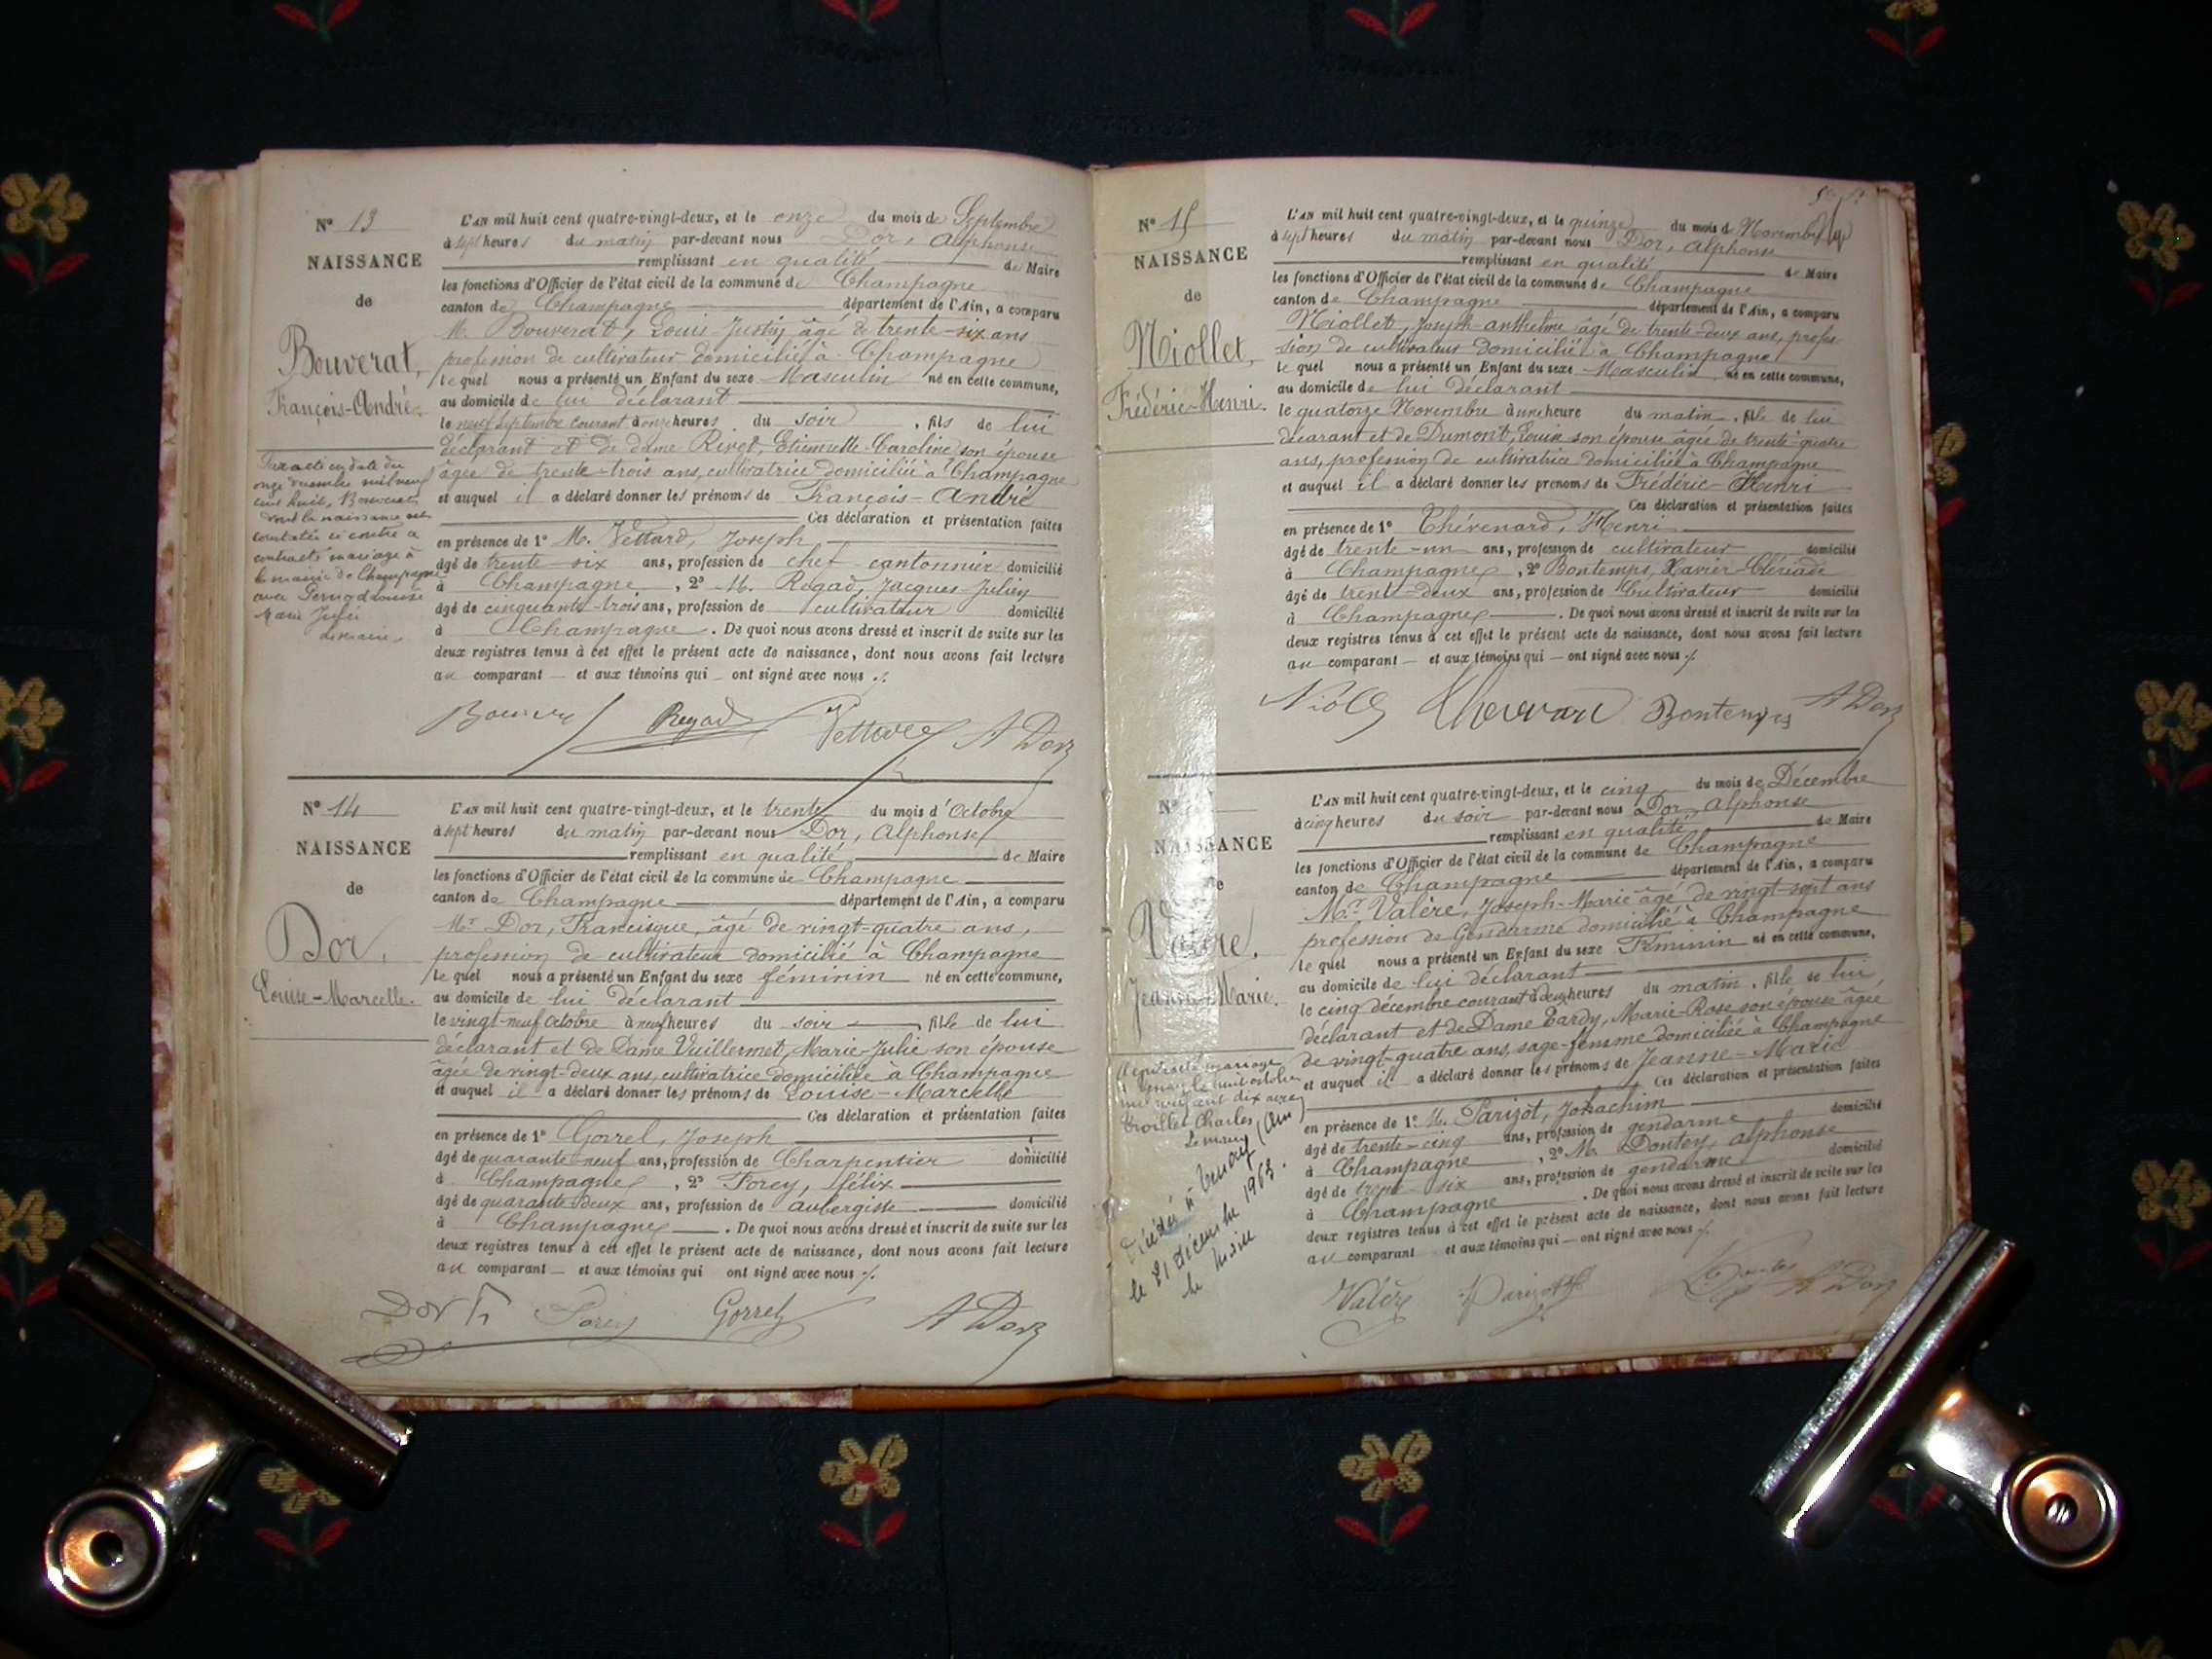 N° 13
NAISSANCE
de
Bouverat,
François-André.
L'AN mil huit cent quatre-vingt-deux, et le onze du mois de Septembre
à sept heures du matin par-devant nous Dor, Alphonse
remplissant en qualité de Maire
les fonctions d'Officier de l'état civil de la commune de Champagne
canton de Champagne département de l'Ain, a comparu
M. Bouverat, Louis-Justin âgé de trente-six ans
profession de cultivateur domicilié à Champagne
le quel nous a présenté un Enfant du sexe Masculin né en cette commune,
au domicile de lui déclarant
le neuf Septembre courant à onze heures du soir, fils de lui
déclarant et de dame Rivet, Etiennette-Caroline son épouse
âgée de trente-trois ans, cultivatrice domiciliée à Champagne
et auquel il a déclaré donner les prénoms de François-André
Ces déclaration et présentation faites
en présence de 1° M. Vettard, Joseph
âgé de trente-six ans, profession de chef cantonnier domicilié
à Champagne, 2° M. Rogad, Jacques-Julien
âgé de cinquante-trois ans, profession de cultivateur domicilié
à Champagne. De quoi nous avons dressé et inscrit de suite sur les
deux registres tenus à cet effet le présent acte de naissance, dont nous avons fait lecture
au comparant et aux témoins qui ont signé avec nous ./.
Par acte en date du
onze mil neuf
cent huit, Bouverat
dont la naissance est
constatée ci contre a
contracté mariage à
la mairie de Champagne
avec
Marie
Rogad A Dor
N° 14
NAISSANCE
de
Dor,
Louise-Marcelle.
L'AN mil huit cent quatre-vingt-deux, et le trente du mois d'Octobre
à sept heures du matin par-devant nous Dor, Alphonse
remplissant en qualité de Maire
les fonctions d'Officier de l'état civil de la commune de Champagne
canton de Champagne département de l'Ain, a comparu
Mr Dor, Francisque, âgé de vingt-quatre ans,
profession de cultivateur domicilié à Champagne
le quel nous a présenté un Enfant du sexe féminin né en cette commune,
au domicile de lui déclarant
le vingt-neuf Octobre à neuf heures du soir, fille de lui
déclarant et de Dame Vuillermet, Marie-Julie son épouse
âgée de vingt-deux ans, cultivatrice domiciliée à Champagne
et auquel il a déclaré donner les prénoms de Louise-Marcelle
Ces déclaration et présentation faites
en présence de 1° Gorrel, Joseph
âgé de quarante-neuf ans, profession de Charpentier domicilié
à Champagne, 2° Sorey, félix
âgé de quarante-deux ans, profession de aubergiste domicilié
à Champagne. De quoi nous avons dressé et inscrit de suite sur les
deux registres tenus à cet effet le présent acte de naissance, dont nous avons fait lecture
au comparant et aux témoins qui ont signé avec nous ./.
Dor Sorey Gorrel A Dor
N° 15
NAISSANCE
de
Niollet,
Frédéric-Henri.
L'AN mil huit cent quatre-vingt-deux, et le quinze du mois de Novembre
à sept heures du matin par-devant nous Dor, Alphonse
remplissant en qualité de Maire
les fonctions d'Officier de l'état civil de la commune de Champagne
canton de Champagne département de l'Ain, a comparu
Niollet, Joseph-anthelme âgé de trente-deux ans, profes-
sion de cultivateur domicilié à Champagne
le quel nous a présenté un Enfant du sexe Masculin né en cette commune,
au domicile de lui déclarant
le quatorze Novembre à une heure du matin, fils de lui
décarant et de Dumont, Louise son épouse âgée de trente-quatre
ans, profession de cultivatrice domiciliée à Champagne
et auquel il a déclaré donner les prénoms de Frédéric-Henri
Ces déclaration et présentation faites
en présence de 1° Thévenard, Henri
âgé de trente-un ans, profession de cultivateur domicilié
à Champagne, 2° Bontemps, Xavier-Clériade
âgé de trente-deux ans, profession de Cultivateur domicilié
à Champagne. De quoi nous avons dressé et inscrit de suite sur les
deux registres tenus à cet effet le présent acte de naissance, dont nous avons fait lecture
au comparant et aux témoins qui ont signé avec nous ./.
Bontemps A Dor
N°
NAISSANCE
de
Valère,
Jeanne-Marie.
L'AN mil huit cent quatre-vingt-deux, et le cinq du mois de Décembre
à cinq heures du soir par-devant nous Dor, Alphonse
remplissant en qualité de Maire
les fonctions d'Officier de l'état civil de la commune de Champagne
canton de Champagne département de l'Ain, a comparu
Mr Valère, Joseph-Marie âgé de vingt-sept ans
profession de Gendarme domicilié à Champagne
le quel nous a présenté un Enfant du sexe Féminin né en cette commune,
au domicile de lui déclarant
le cinq décembre courant à deux heures du matin, fille de lui
déclarant et de Dame Tardy, Marie-Rose son épouse âgée
de vingt-quatre ans, sage-femme domiciliée à Champagne
et auquel il a déclaré donner les prénoms de Jeanne-Marie
Ces déclaration et présentation faites
en présence de 1° M. Parizot, Johachim domicilié
âgé de trente-cinq ans, profession de gendarme
à Champagne, 2° M. Dontey, Alphonse
âgé de trente-six ans, profession de gendarme domicilié
à Champagne. De quoi nous avons dressé et inscrit de suite sur les
deux registres tenus à cet effet le présent acte de naissance, dont nous avons fait lecture
au comparant et aux témoins qui ont signé avec nous ./.
A contracté mariage
le huit octobre
mil neuf cent dix avec
Charles
(Ain)
Décédée à
le 21 décembre 1963.
le Maire
Valère Parizot A Dor